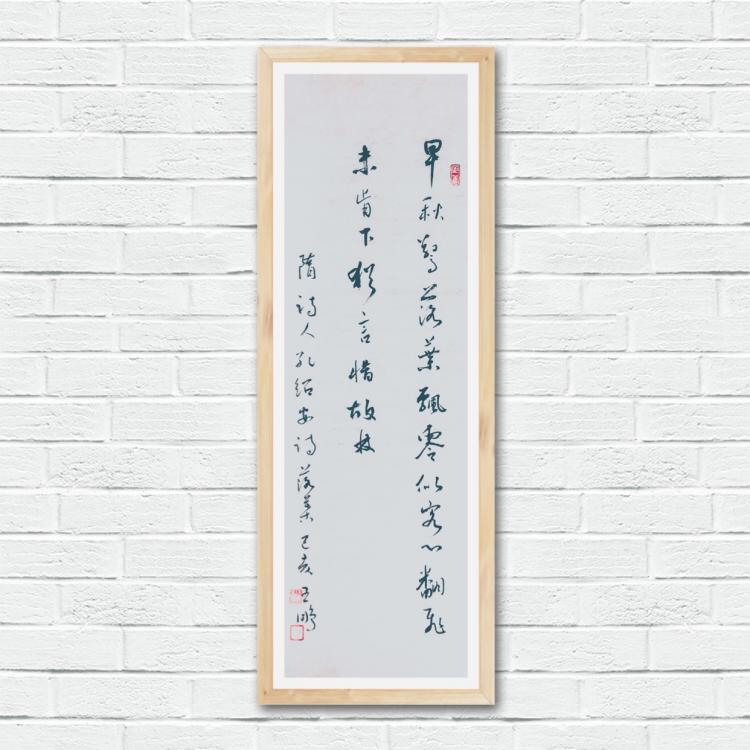 早秋驚落葉飄零似客心翻飛
未肯下猶言惜故枝
隋詩人孔紹安詩落葉己亥王鵬